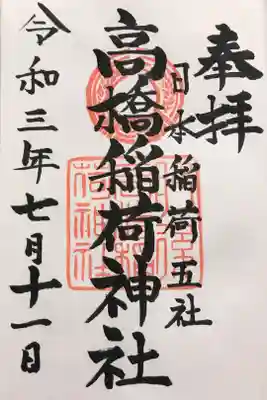 奉拝
日本稲荷五社
高橋稲荷神社
令和三年七月十一日